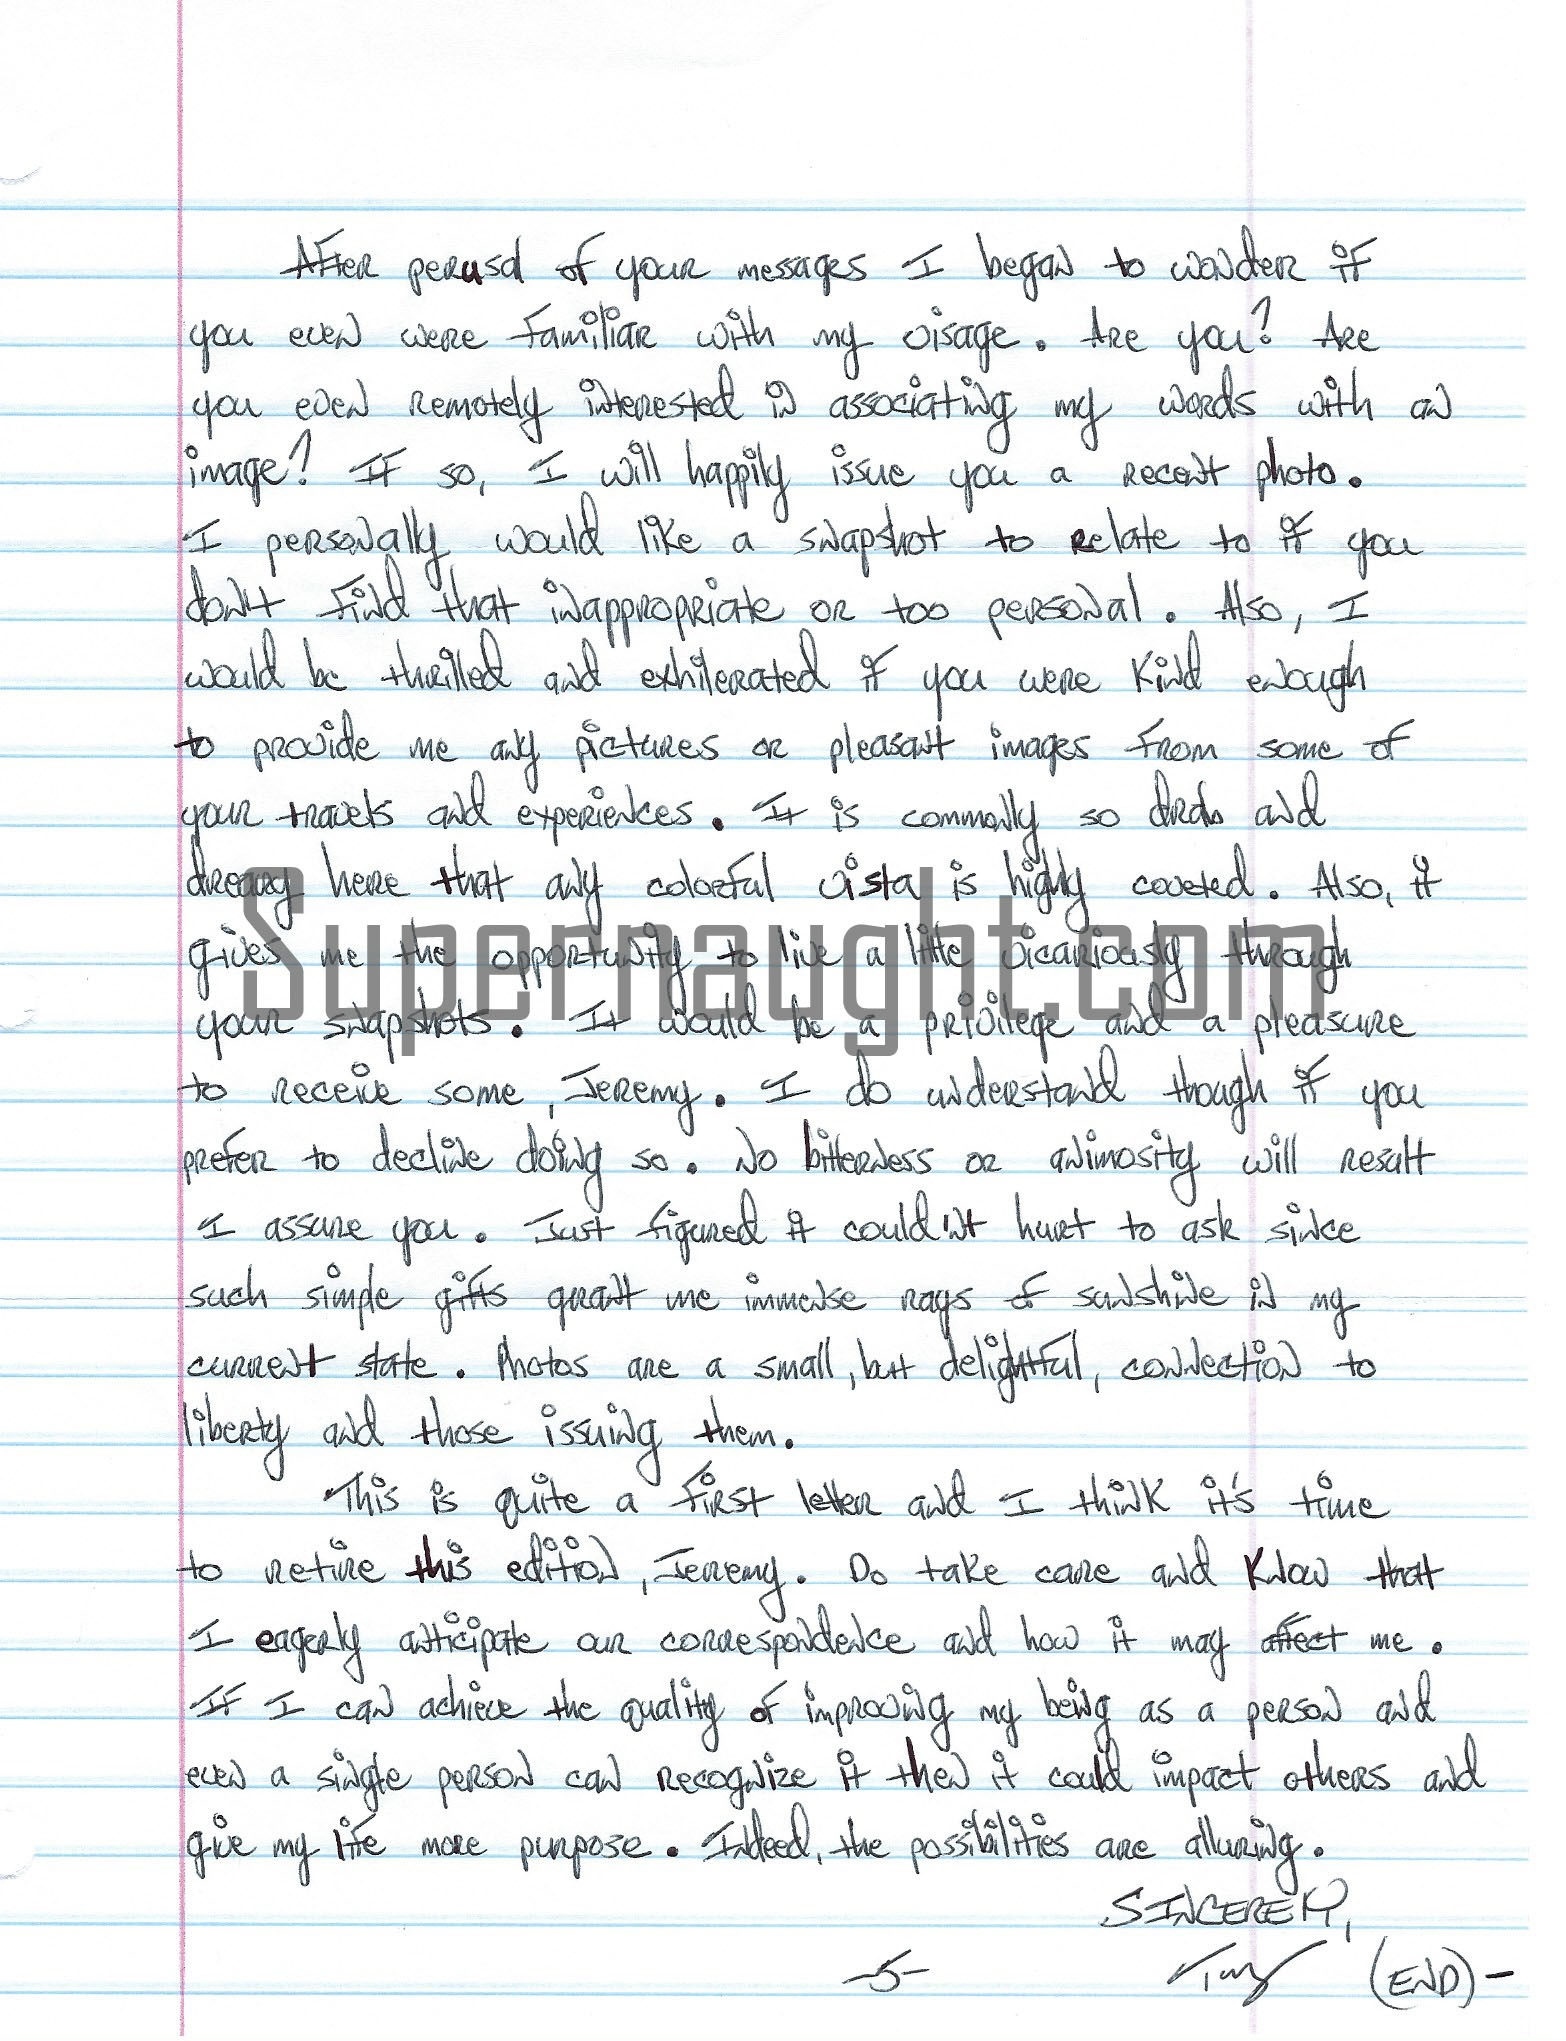 After perusal of your messages I began to wonder if
you even were familiar with my visage. Are you? Are
you even remotely interested in associating my words with an
image? If so, I will happily issue you a recent photo.
I personally would like a snapshot to relate to if you
don't find that inappropriate or too personal. Also, I
would be thrilled and exhilerated if you were kind enough
to provide me any pictures or pleasant images from some of
your travels and experiences. It is commonly so drab and
dreary here that any colorful vista is highly coveted. Also, it
gives me the opportunity to live a little vicariously through
Supernaught.com
your snapshots. It would be a privilege and a pleasure
to receive some, Jeremy. I do understand though if you
prefer to decline doing so. No bitterness or animosity will result
I assure you. Just figured it couldn't hurt to ask since
such simple gifts grant me immense rays of sunshine in my
current state. Photos are a small, but delightful, connection to
liberty and those issuing them.
This is quite a first letter and I think it's time
to retire this edition, Jeremy. Do take care and know that
I eagerly anticipate our correspondence and how it may affect me.
If I can achieve the quality of improving my being as a person and
even a single person can recognize it then it could impact others and
give my life more purpose. Indeed, the possibilities are alluring.
SINCERELY,
-5- (END)-